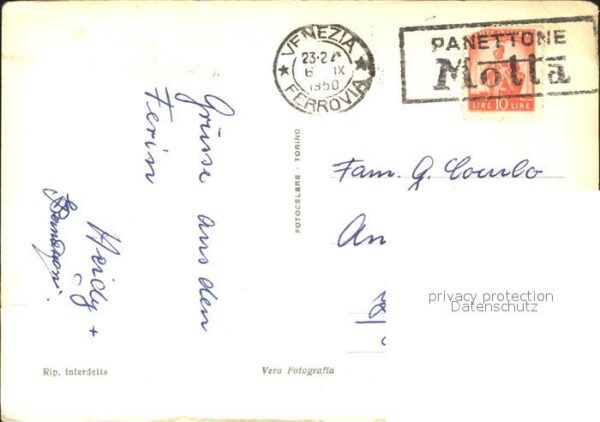 VENEZIA
23-24
6 IX
1950
FERROVIA
PANETTONE
Motta
LIRE 10 LIRE
Grüsse aus den
Ferien
Heidy +
FOTOCELERE - TORINO
Fam. G.
An
privacy protection
Datenschutz
Rip. interdette
Vera Fotografia